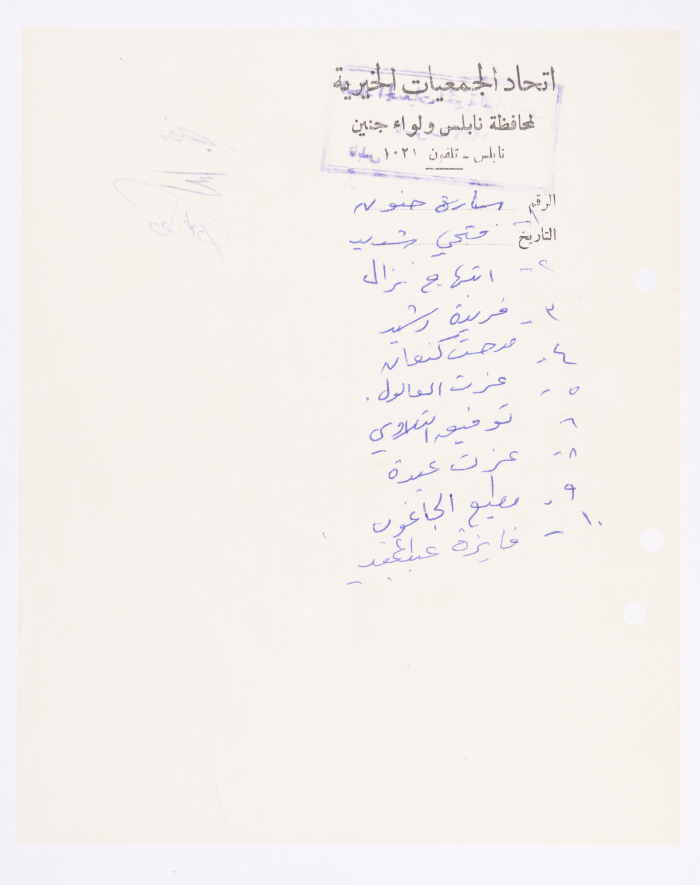 اتحاد الجمعيات الخيرية
لمحافظة نابلس ولواء جنين
نابلس - تلفون ١٠٢١
الرقم سارة حنون
التاريخ فتحي شديد
٢- ابتهاج نزال
٣- فريدة رشيد
٤- مدحت كنعان
٥- عزت العالول.
٦- توفيق التلاوي
٨- عزت عبدة
٩- مطيع الجاغون
١٠- فايزة عبدالمجيد